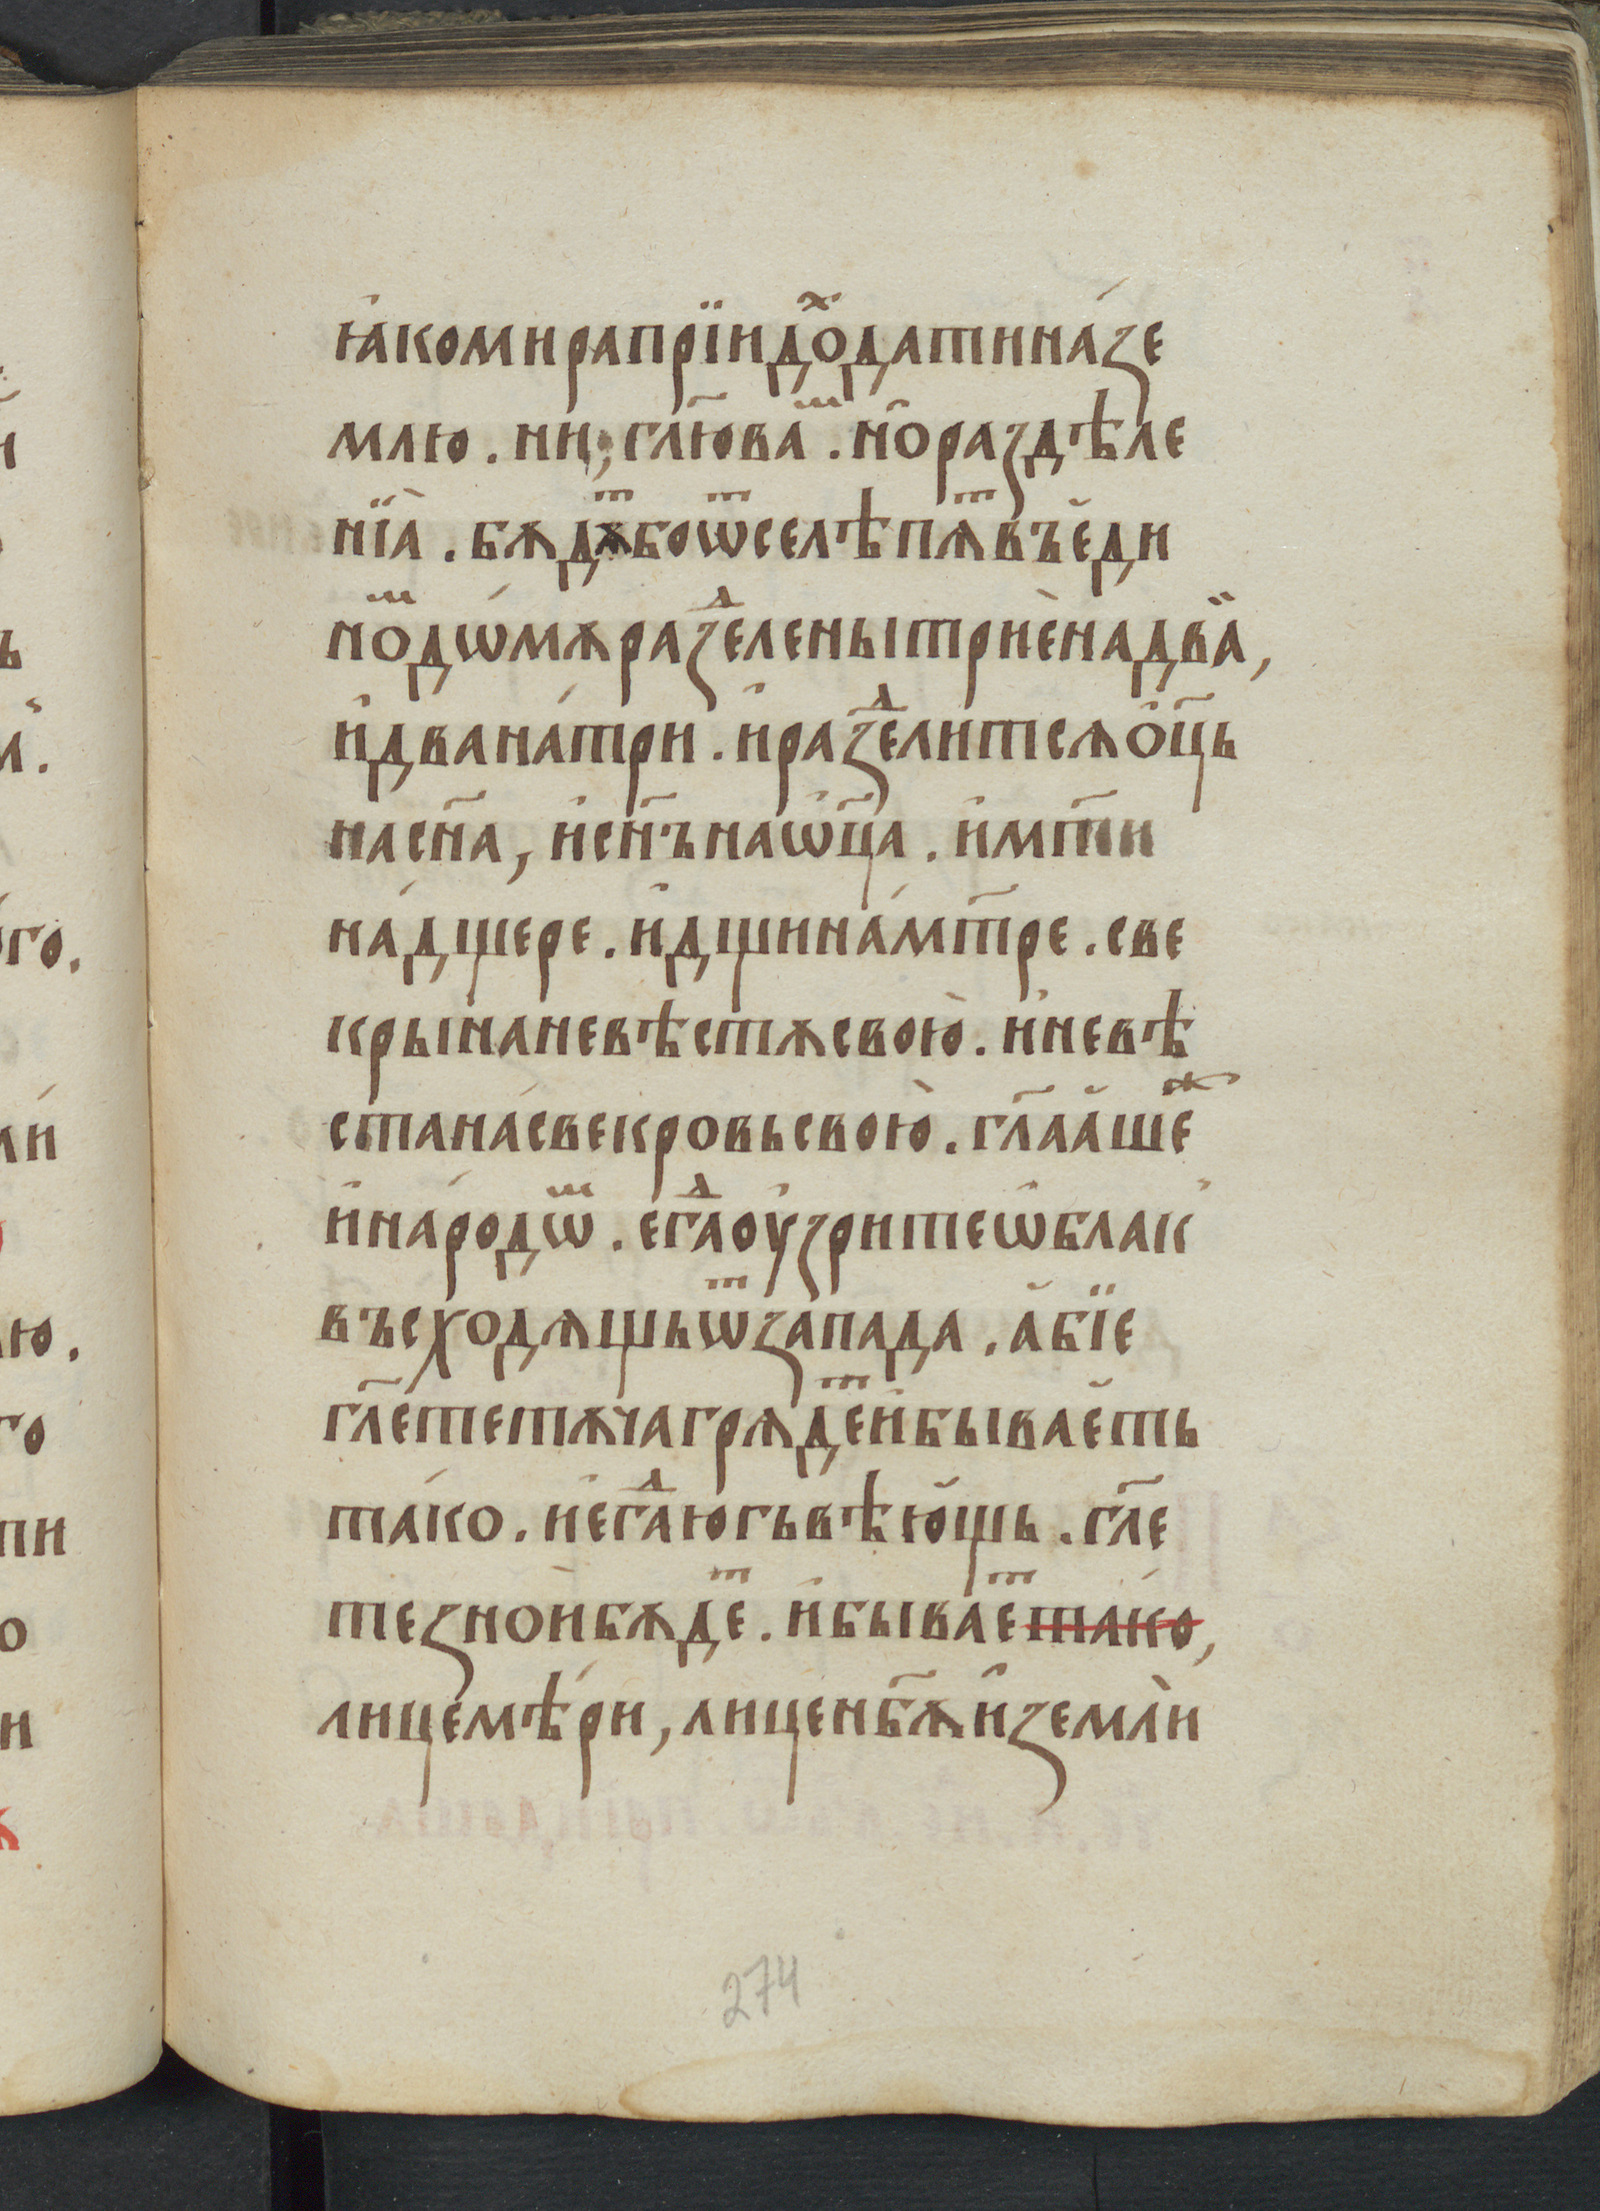 ꙗ҆комирапрїидо́ⷯдатинаⷭ҇зе
млю . ни , гл҃юваⷨ . но҆раздѣле
нїа̀ . бѫдѫⷮбоѿселѣпѧⷮвъе҆ди
но́ⷨдѡмѫразⷣеленытрие҆надва̏ ,
и҆дванатри . и҆разⷣелитсѧѻ҆ц҃ь
насн҃а , и҆сн҃ънаѡ҆ц҃а . и҆мт҃и
на́дщере . и҆дщина́мт҃ре . све
крынаневѣстѫсвою̀ . и҆невѣ
станасвекровьсвою̀ . гл҃аа҆шеⷤ
и҆наро́дѡⷨ . егⷣаоу҆зритеѡ҆блак
въсходѧщьѿзапада . а҆бїе
гл҃ететѫчагрѧдеⷮи҆бывае҆ть
та́ко . и҆егⷣаюгьвѣю҆щь . гл҃е
тезно́ибѫдеⷮ . и҆бывае҆ⷮта́ко ,
лицемѣ́ри , лиценб҃ѫи҆землѝ
274